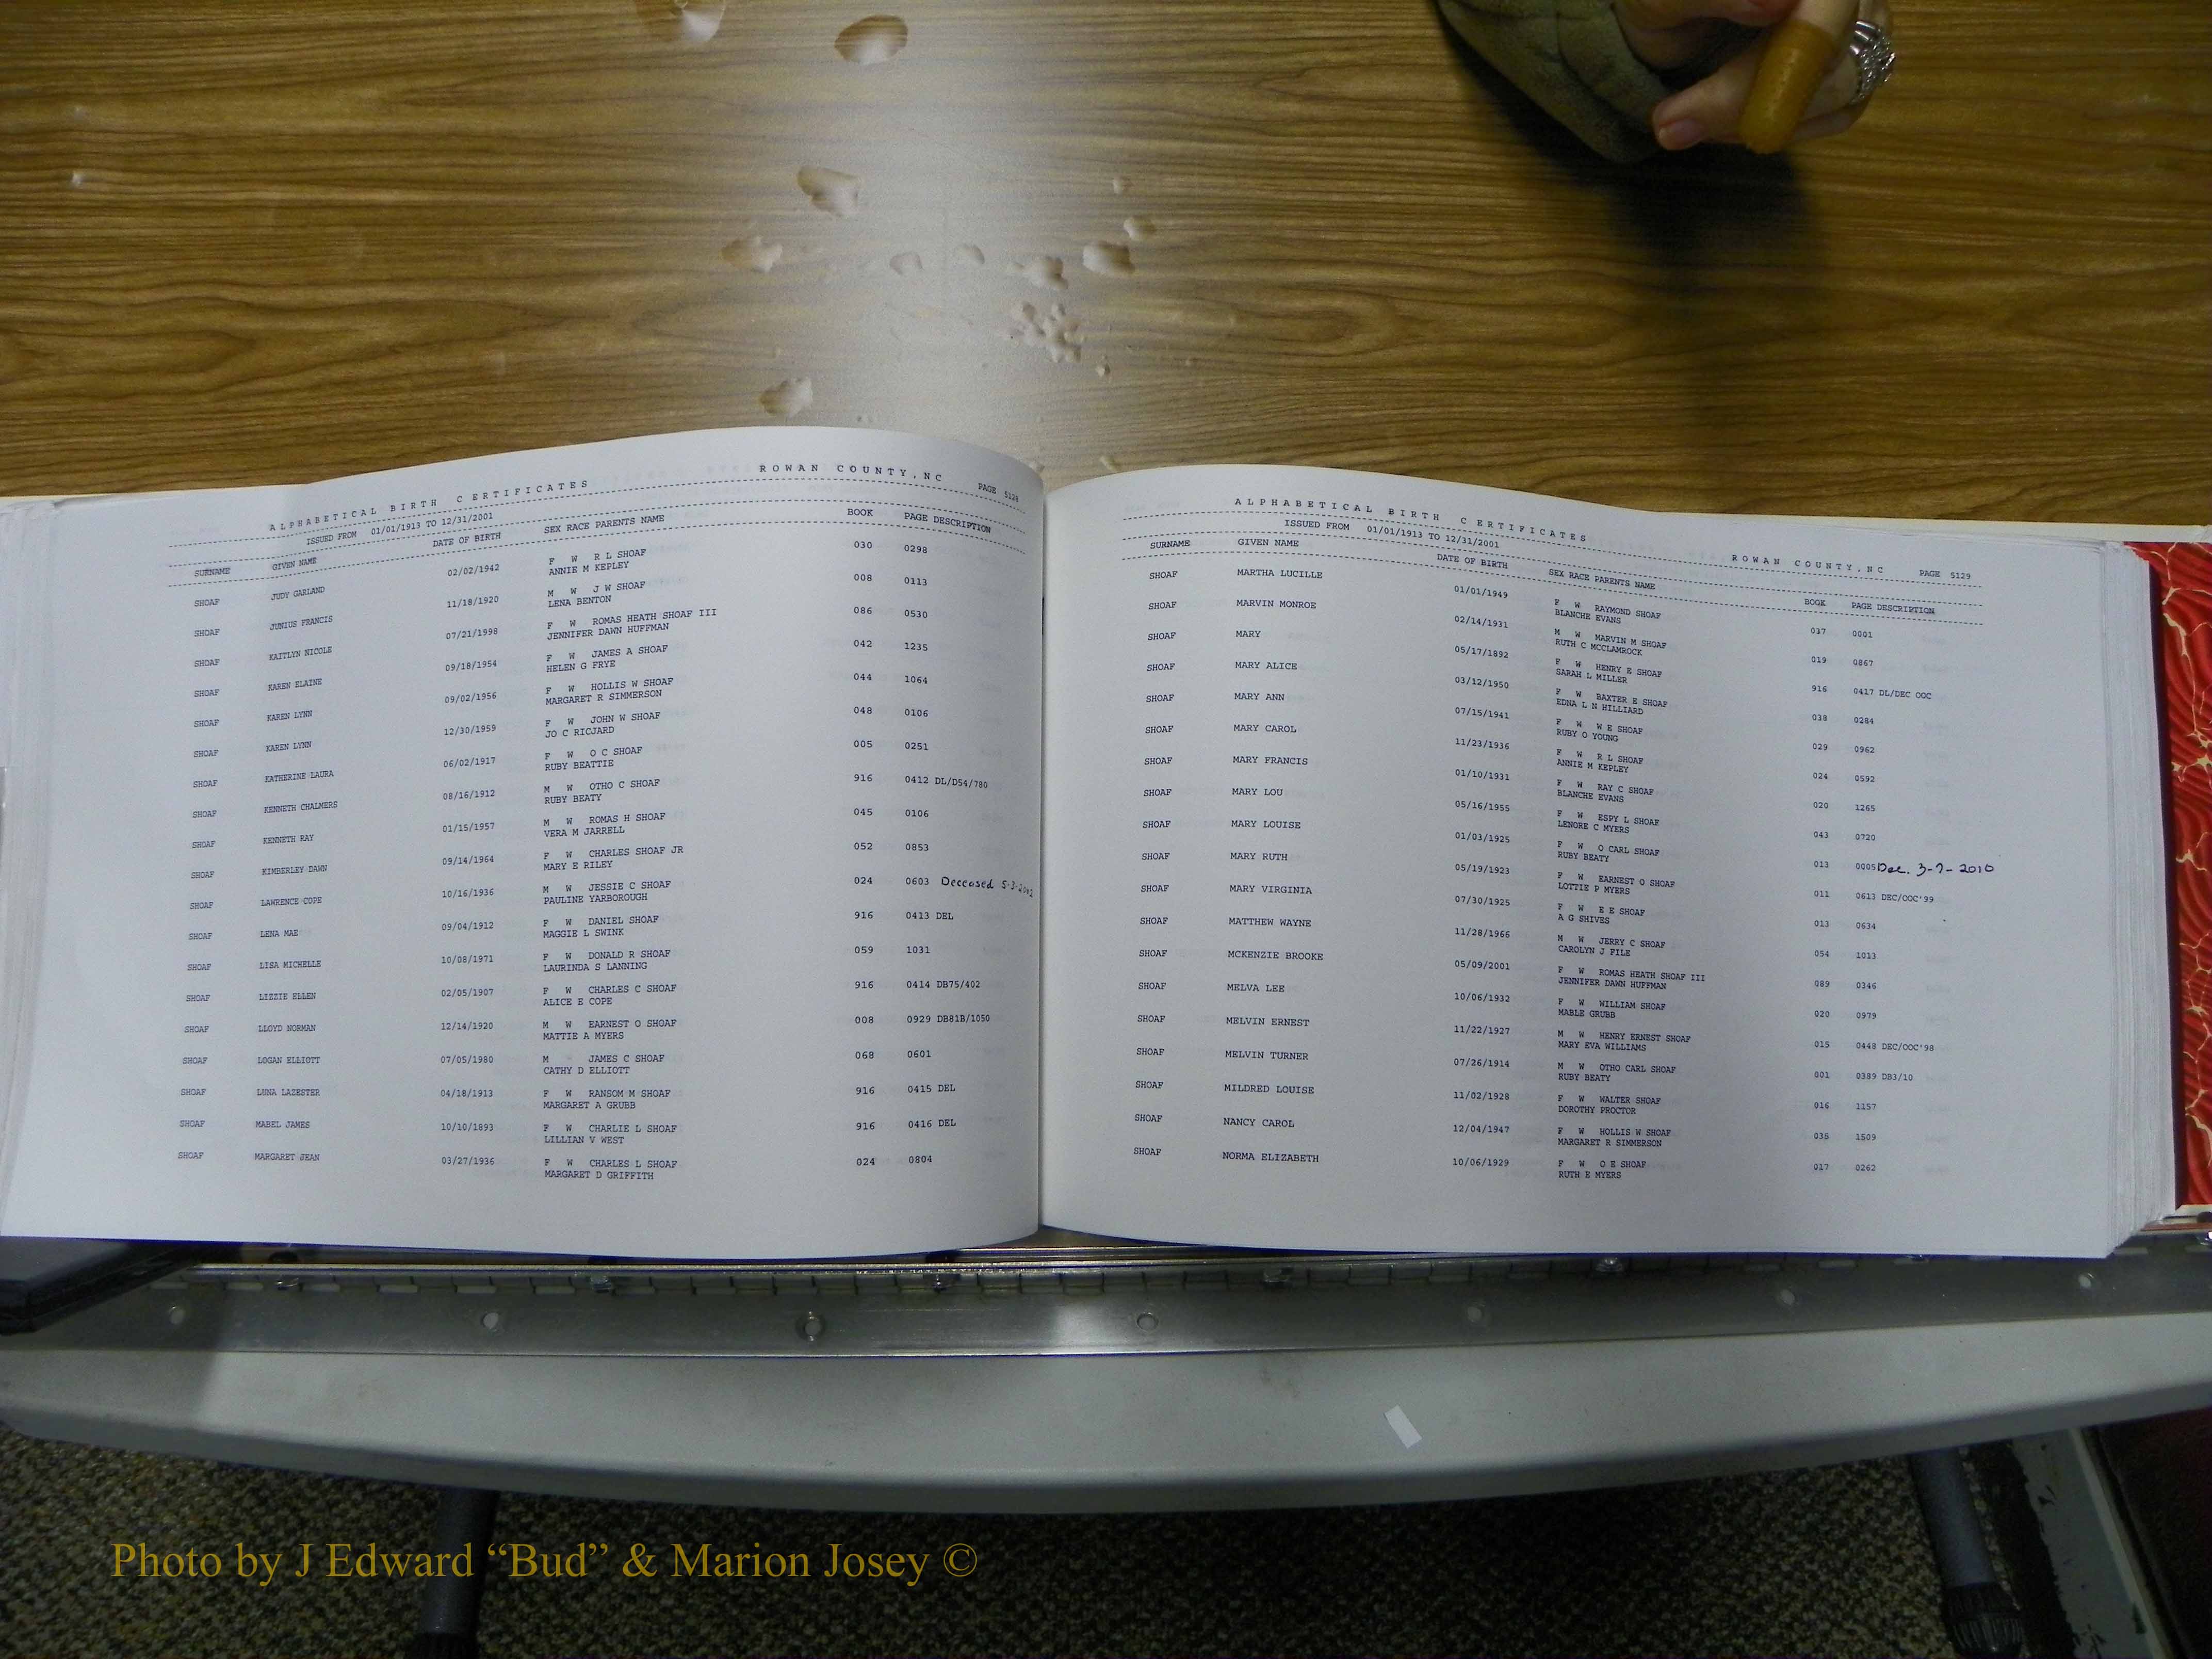 ALPHABETICAL BIRTH CERTIFICATES ROWAN COUNTY, NC PAGE 5128
ISSUED FROM 01/01/1913 TO 12/31/2001
SURNAME GIVEN NAME DATE OF BIRTH SEX RACE PARENTS NAME BOOK PAGE DESCRIPTION
SHOAF JUDY GARLAND 02/02/1942 F W R L SHOAF 030 0298
ANNIE M KEPLEY
SHOAF JUNIUS FRANCIS 11/18/1920 M W J W SHOAF 008 0113
LENA BENTON
SHOAF KAITLYN NICOLE 07/21/1998 F W ROMAS HEATH SHOAF III 086 0530
JENNIFER DAWN HUFFMAN
SHOAF KAREN ELAINE 09/18/1954 F W JAMES A SHOAF 042 1235
HELEN G FRYE
SHOAF KAREN LYNN 09/02/1956 F W HOLLIS W SHOAF 044 1064
MARGARET R SIMMERSON
SHOAF KAREN LYNN 12/30/1959 F W JOHN W SHOAF 048 0106
JO C RICJARD
SHOAF KATHERINE LAURA 06/02/1917 F W O C SHOAF 005 0251
RUBY BEATTIE
SHOAF KENNETH CHALMERS 08/16/1912 M W OTHO C SHOAF 916 0412 DL/D54/780
RUBY BEATY
SHOAF KENNETH RAY 01/15/1957 M W ROMAS H SHOAF 045 0106
VERA M JARRELL
SHOAF KIMBERLEY DAWN 09/14/1964 F W CHARLES SHOAF JR 052 0853
MARY E RILEY
SHOAF LAWRENCE COPE 10/16/1936 M W JESSIE C SHOAF 024 0603 Deceased 5-3-2002
PAULINE YARBOROUGH
SHOAF LENA MAE 09/04/1912 F W DANIEL SHOAF 916 0413 DEL
MAGGIE L SWINK
SHOAF LISA MICHELLE 10/08/1971 F W DONALD R SHOAF 059 1031
LAURINDA S LANNING
SHOAF LIZZIE ELLEN 02/05/1907 F W CHARLES C SHOAF 916 0414 DB75/402
ALICE E COPE
SHOAF LLOYD NORMAN 12/14/1920 M W EARNEST O SHOAF 008 0929 DB81B/1050
MATTIE A MYERS
SHOAF LOGAN ELLIOTT 07/05/1980 M JAMES C SHOAF 068 0601
CATHY D ELLIOTT
SHOAF LUNA LAZESTER 04/18/1913 F W RANSOM M SHOAF 916 0415 DEL
MARGARET A GRUBB
SHOAF MABEL JAMES 10/10/1893 F W CHARLIE L SHOAF 916 0416 DEL
LILLIAN V WEST
SHOAF MARGARET JEAN 03/27/1936 F W CHARLES L SHOAF 024 0804
MARGARET D GRIFFITH
ALPHABETICAL BIRTH CERTIFICATES ROWAN COUNTY, NC PAGE 5129
ISSUED FROM 01/01/1913 TO 12/31/2001
SURNAME GIVEN NAME DATE OF BIRTH SEX RACE PARENTS NAME BOOK PAGE DESCRIPTION
SHOAF MARTHA LUCILLE 01/01/1949 F W RAYMOND SHOAF 037 0001
BLANCHE EVANS
SHOAF MARVIN MONROE 02/14/1931 M W MARVIN M SHOAF 019 0867
RUTH C MCCLAMROCK
SHOAF MARY 05/17/1892 F W HENRY E SHOAF 916 0417 DL/DEC OOC
SARAH L MILLER
SHOAF MARY ALICE 03/12/1950 F W BAXTER E SHOAF 038 0284
EDNA L N HILLIARD
SHOAF MARY ANN 07/15/1941 F W W E SHOAF 029 0962
RUBY O YOUNG
SHOAF MARY CAROL 11/23/1936 F W R L SHOAF 024 0592
ANNIE M KEPLEY
SHOAF MARY FRANCIS 01/10/1931 F W RAY C SHOAF 020 1265
BLANCHE EVANS
SHOAF MARY LOU 05/16/1955 F W ESPY L SHOAF 043 0720
LENORE C MYERS
SHOAF MARY LOUISE 01/03/1925 F W O CARL SHOAF 013 0005 Dec. 3-7-2010
RUBY BEATY
SHOAF MARY RUTH 05/19/1923 F W EARNEST O SHOAF 011 0613 DEC/OOC'99
LOTTIE P MYERS
SHOAF MARY VIRGINIA 07/30/1925 F W E E SHOAF 013 0634
A G SHIVES
SHOAF MATTHEW WAYNE 11/28/1966 M W JERRY C SHOAF 054 1013
CAROLYN J FILE
SHOAF MCKENZIE BROOKE 05/09/2001 F W ROMAS HEATH SHOAF III 089 0346
JENNIFER DAWN HUFFMAN
SHOAF MELVA LEE 10/06/1932 F W WILLIAM SHOAF 020 0979
MABLE GRUBB
SHOAF MELVIN ERNEST 11/22/1927 M W HENRY ERNEST SHOAF 015 0448 DEC/OOC'98
MARY EVA WILLIAMS
SHOAF MELVIN TURNER 07/26/1914 M W OTHO CARL SHOAF 001 0389 DB3/10
RUBY BEATY
SHOAF MILDRED LOUISE 11/02/1928 F W WALTER SHOAF 016 1157
DOROTHY PROCTOR
SHOAF NANCY CAROL 12/04/1947 F W HOLLIS W SHOAF 035 1509
MARGARET R SIMMERSON
SHOAF NORMA ELIZABETH 10/06/1929 F W O E SHOAF 017 0262
RUTH E MYERS
Photo by J Edward “Bud” & Marion Josey ©